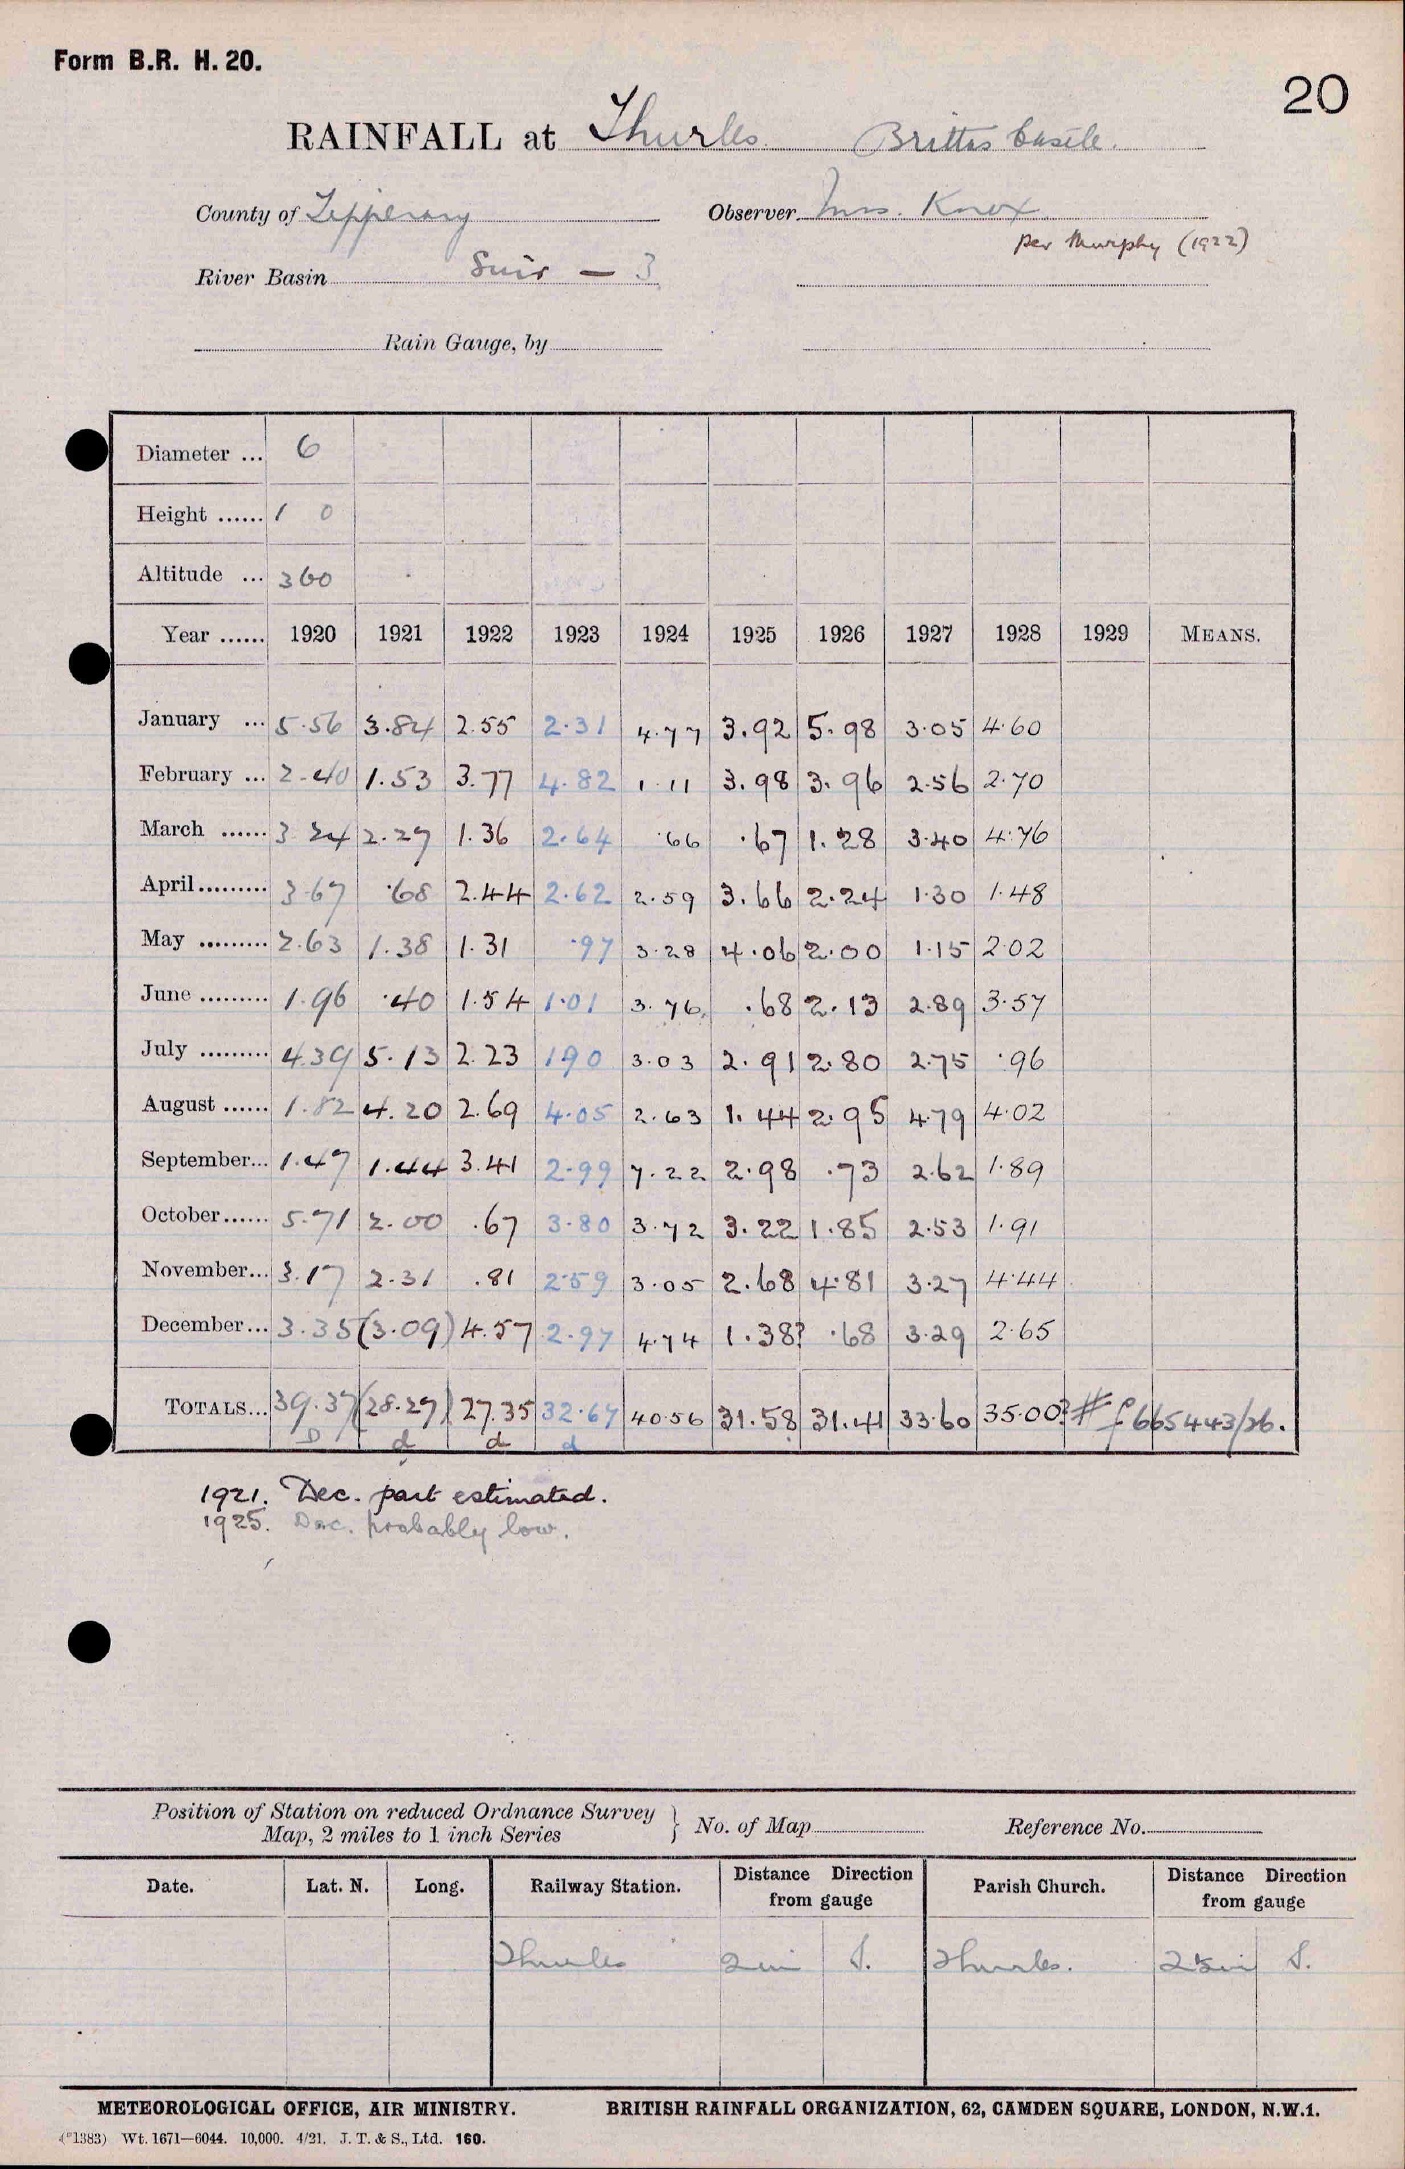 Form B.R. H. 20.
20
RAINFALL at Thurles Brittas Castle.
County of Tipperary Observer Mrs. Knox
per Murphy (1922)
River Basin Suir — 3
Rain Gauge, by
Diameter ... 6
Height ...... 1 0
Altitude ... 360
Year ...... 1920 1921 1922 1923 1924 1925 1926 1927 1928 1929 MEANS.
January ... 5.56 3.84 2.55 2.31 4.77 3.92 5.98 3.05 4.60
February ... 2.40 1.53 3.77 4.82 1.11 3.98 3.96 2.56 2.70
March ...... 3.24 2.27 1.36 2.64 .66 .67 1.28 3.40 4.76
April ......... 3.67 .68 2.44 2.62 2.59 3.66 2.24 1.30 1.48
May ......... 2.63 1.38 1.31 .97 3.28 4.06 2.00 1.15 2.02
June ......... 1.96 .40 1.54 1.01 3.76 .68 2.13 2.89 3.57
July ......... 4.39 5.13 2.23 1.90 3.03 2.91 2.80 2.75 .96
August ...... 1.82 4.20 2.69 4.05 2.63 1.44 2.95 4.79 4.02
September... 1.47 1.44 3.41 2.99 7.22 2.98 .73 2.62 1.89
October...... 5.71 2.00 .67 3.80 3.72 3.22 1.85 2.53 1.91
November... 3.17 2.31 .81 2.59 3.05 2.68 4.81 3.27 4.44
December... 3.35 (3.09) 4.57 2.97 4.74 1.38? .68 3.29 2.65
TOTALS... 39.37 (28.27) 27.35 32.67 40.56 31.58 31.41 33.60 35.00? # f 665443/26.
D d d d
1921. Dec. part estimated.
1925. Dec. probably low.
Position of Station on reduced Ordnance Survey
Map, 2 miles to 1 inch Series } No. of Map Reference No.
Date. Lat. N. Long. Railway Station. Distance Direction from gauge Parish Church. Distance Direction from gauge
Thurles 2 mi S. Thurles. S.
METEOROLOGICAL OFFICE, AIR MINISTRY. BRITISH RAINFALL ORGANIZATION, 62, CAMDEN SQUARE, LONDON, N.W.1.
(*1383) Wt. 1671—6044. 10,000. 4/21. J. T. & S., Ltd. 160.